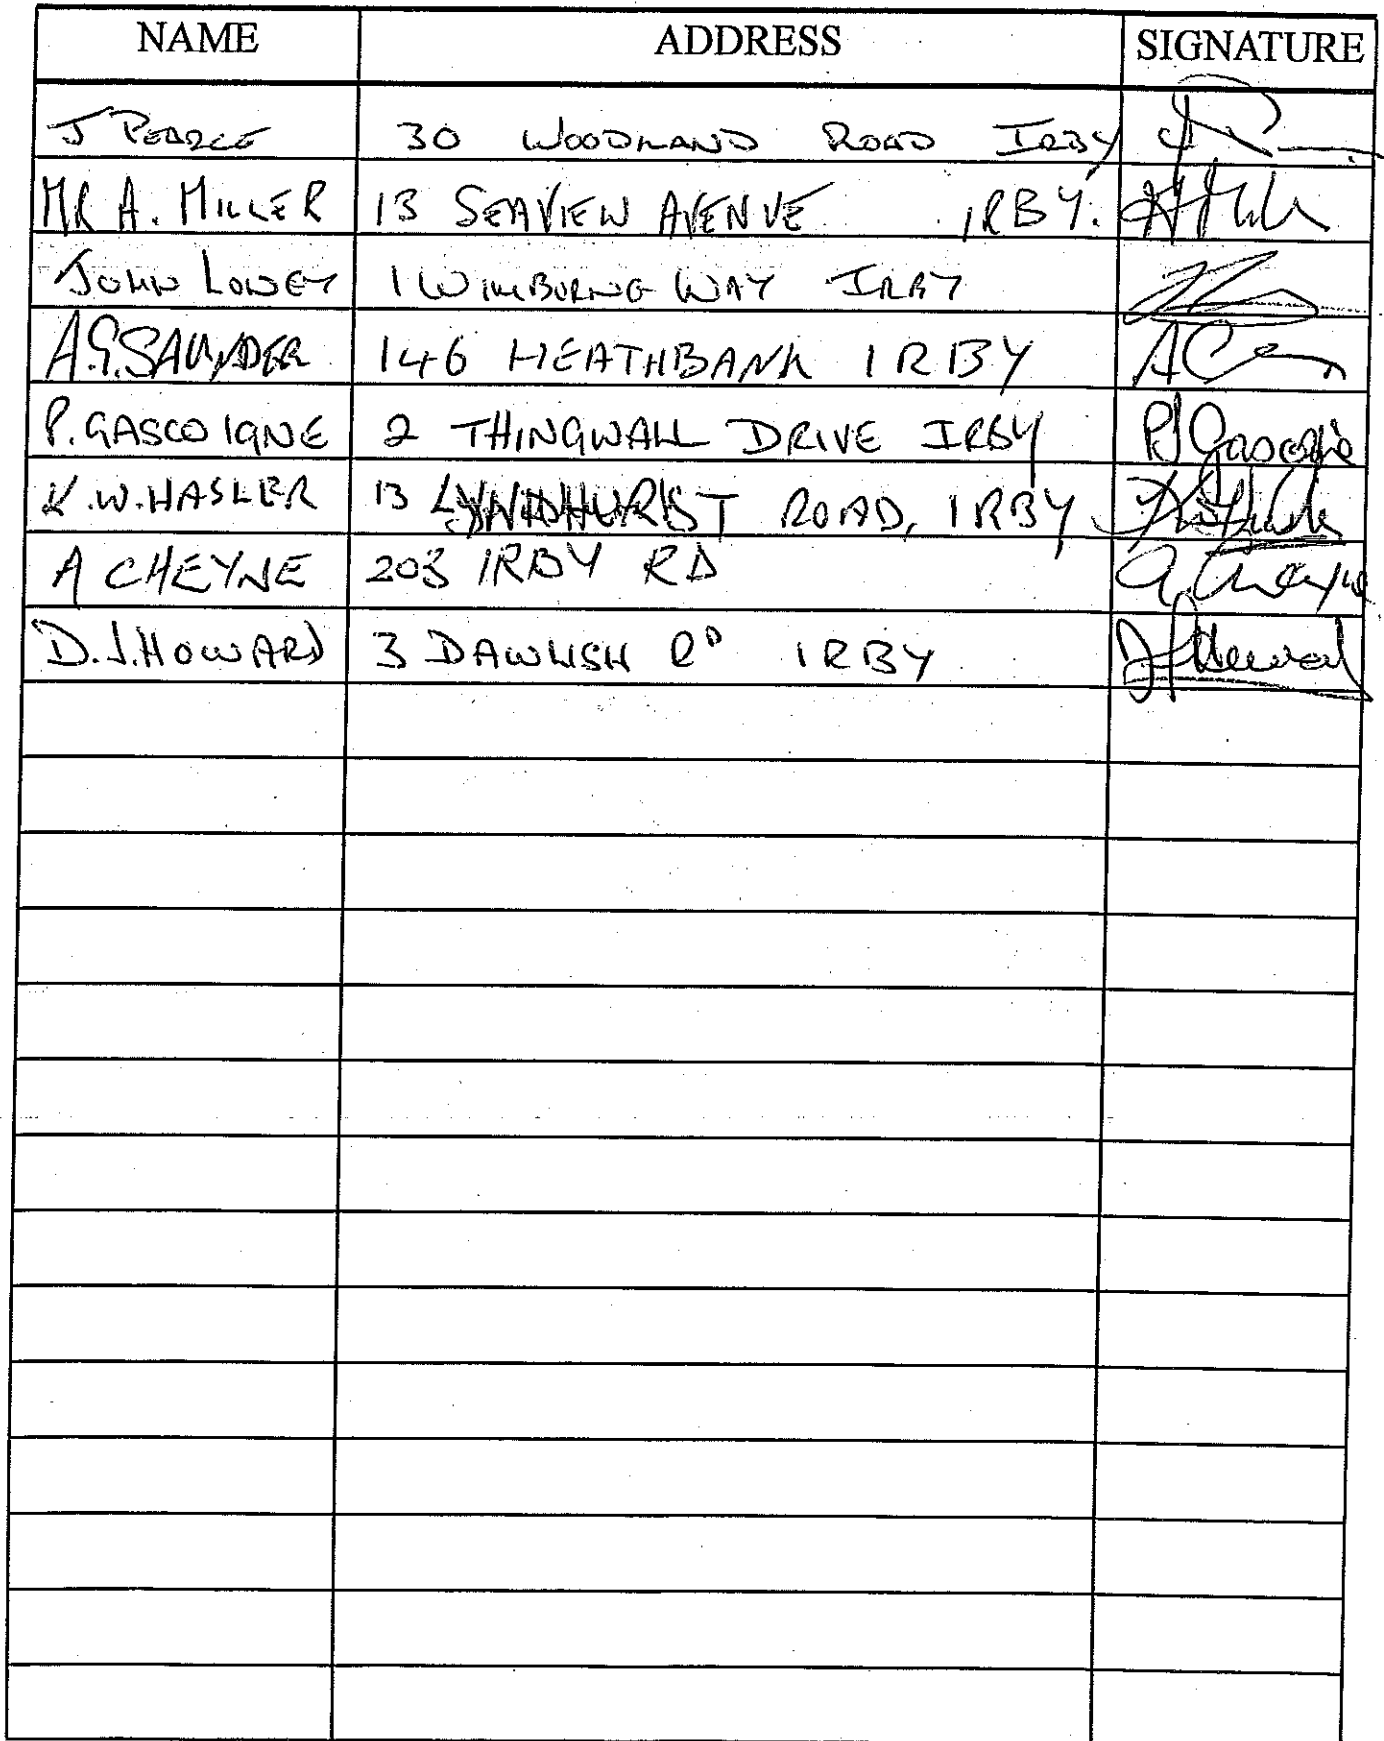 NAME ADDRESS SIGNATURE
J PEARCE 30 WOODLAND ROAD IRBY
MR A. MILLER 13 SEAVIEW AVENUE IRBY.
JOHN LOWEY 1 WIMBORNE WAY IRBY
A.G. SAUNDER 146 HEATHBANK IRBY
P. GASCOIGNE 2 THINGWALL DRIVE IRBY PJ Gascoigne
K.W. HASLER 13 LYNDHURST ROAD, IRBY
A CHEYNE 203 IRBY RD A. Cheyne
D.J. HOWARD 3 DAWLISH RD IRBY DJ Howard